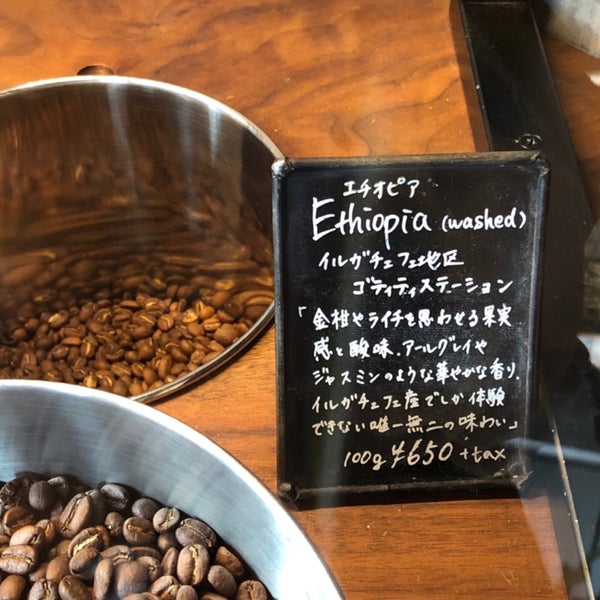 エチオピア
Ethiopia (washed)
イルガチェフェ地区
ゴティティステーション
「金柑やライチを思わせる果実
感と酸味.アールグレイや
ジャスミンのような華やかな香り.
イルガチェフェ産でしか体験
できない唯一無二の味わい」
100g ¥650 +tax